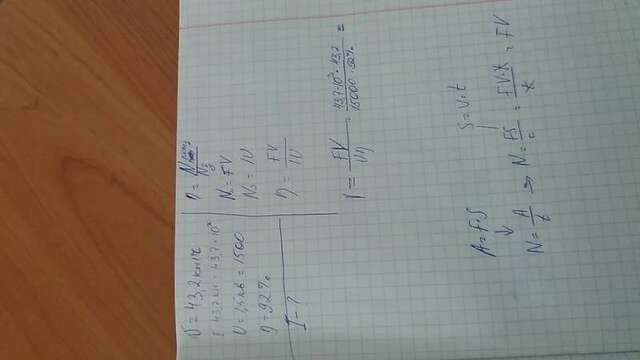 V = 43,2 км/ч
F 43,7 кН = 43,7·10³
U = 1,5 кВ = 1500
η = 92%
I - ?
η = Nпол/Nз
Nп = FV
Nз = IU
η = FV/IU
I = FV/Uη = 43,7·10³·43,2/15000·92% =
A = F·S
↓
N = A/t ⇒ N = FS/t = FV·t/t = FV
S = V·t